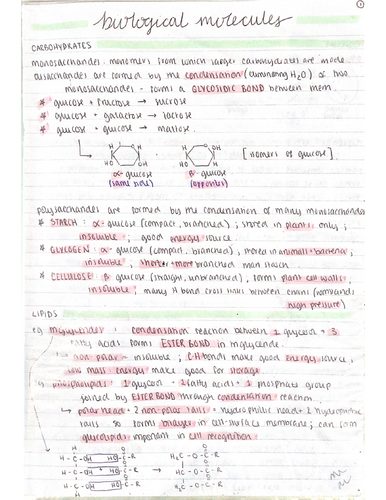 biological molecules
CARBOHYDRATES
monosaccharides: monomers from which larger carbohydrates are made
disaccharides are formed by the condensation (eliminating H₂O) of two
monosaccharides - forms a GLYCOSIDIC BOND between them.
* glucose + fructose → sucrose
* glucose + galactose → lactose
* glucose + glucose → maltose.
H H H OH
OH OH OH H
α-glucose β-glucose [isomers of glucose]
(same side) (opposites)
polysaccharides are formed by the condensation of many monosaccharides
* STARCH: α-glucose (compact, branched); stored in plants only;
insoluble; good energy source.
* GLYCOGEN: α-glucose (compact, branched), stored in animals + bacteria;
insoluble, shorter + more branched than starch.
* CELLULOSE: β glucose (straight, unbranched), forms plant cell walls,
insoluble; many H bond cross links between chains (withstands
high pressure)
LIPIDS
triglycerides: condensation reaction between 1 glycerol + 3
fatty acids forms ESTER BOND in triglyceride.
↳ non polar - insoluble; C-H bonds make good energy source,
low mass: energy make good for storage.
phospholipids: 1 glycerol + 2 fatty acids + 1 phosphate group
joined by ESTER BOND through condensation reaction.
↳ polar head + 2 non polar tails = hydrophilic head + 2 hydrophobic
tails so forms bilayer in cell-surface membrane; can form
glycolipids important in cell recognition
H O H O
H-C-OH HO-C-R H₂C-O-C-R
H-C-OH + HO-C-R → HC-O-C-R
H-C-OH HO-C-R H₂C-O-C-R